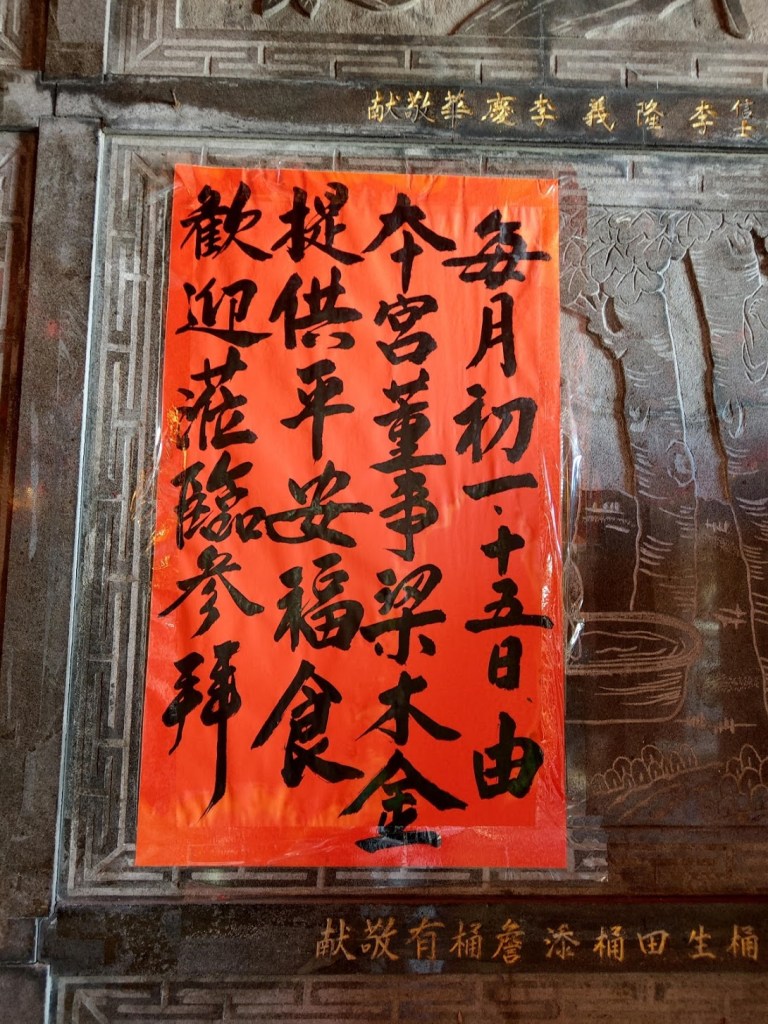 信士李隆義李慶華敬献
每月初一、十五日由
本宮董事梁木金
提供平安福食
歡迎蒞臨参拜
桶生田桶添詹桶有敬献